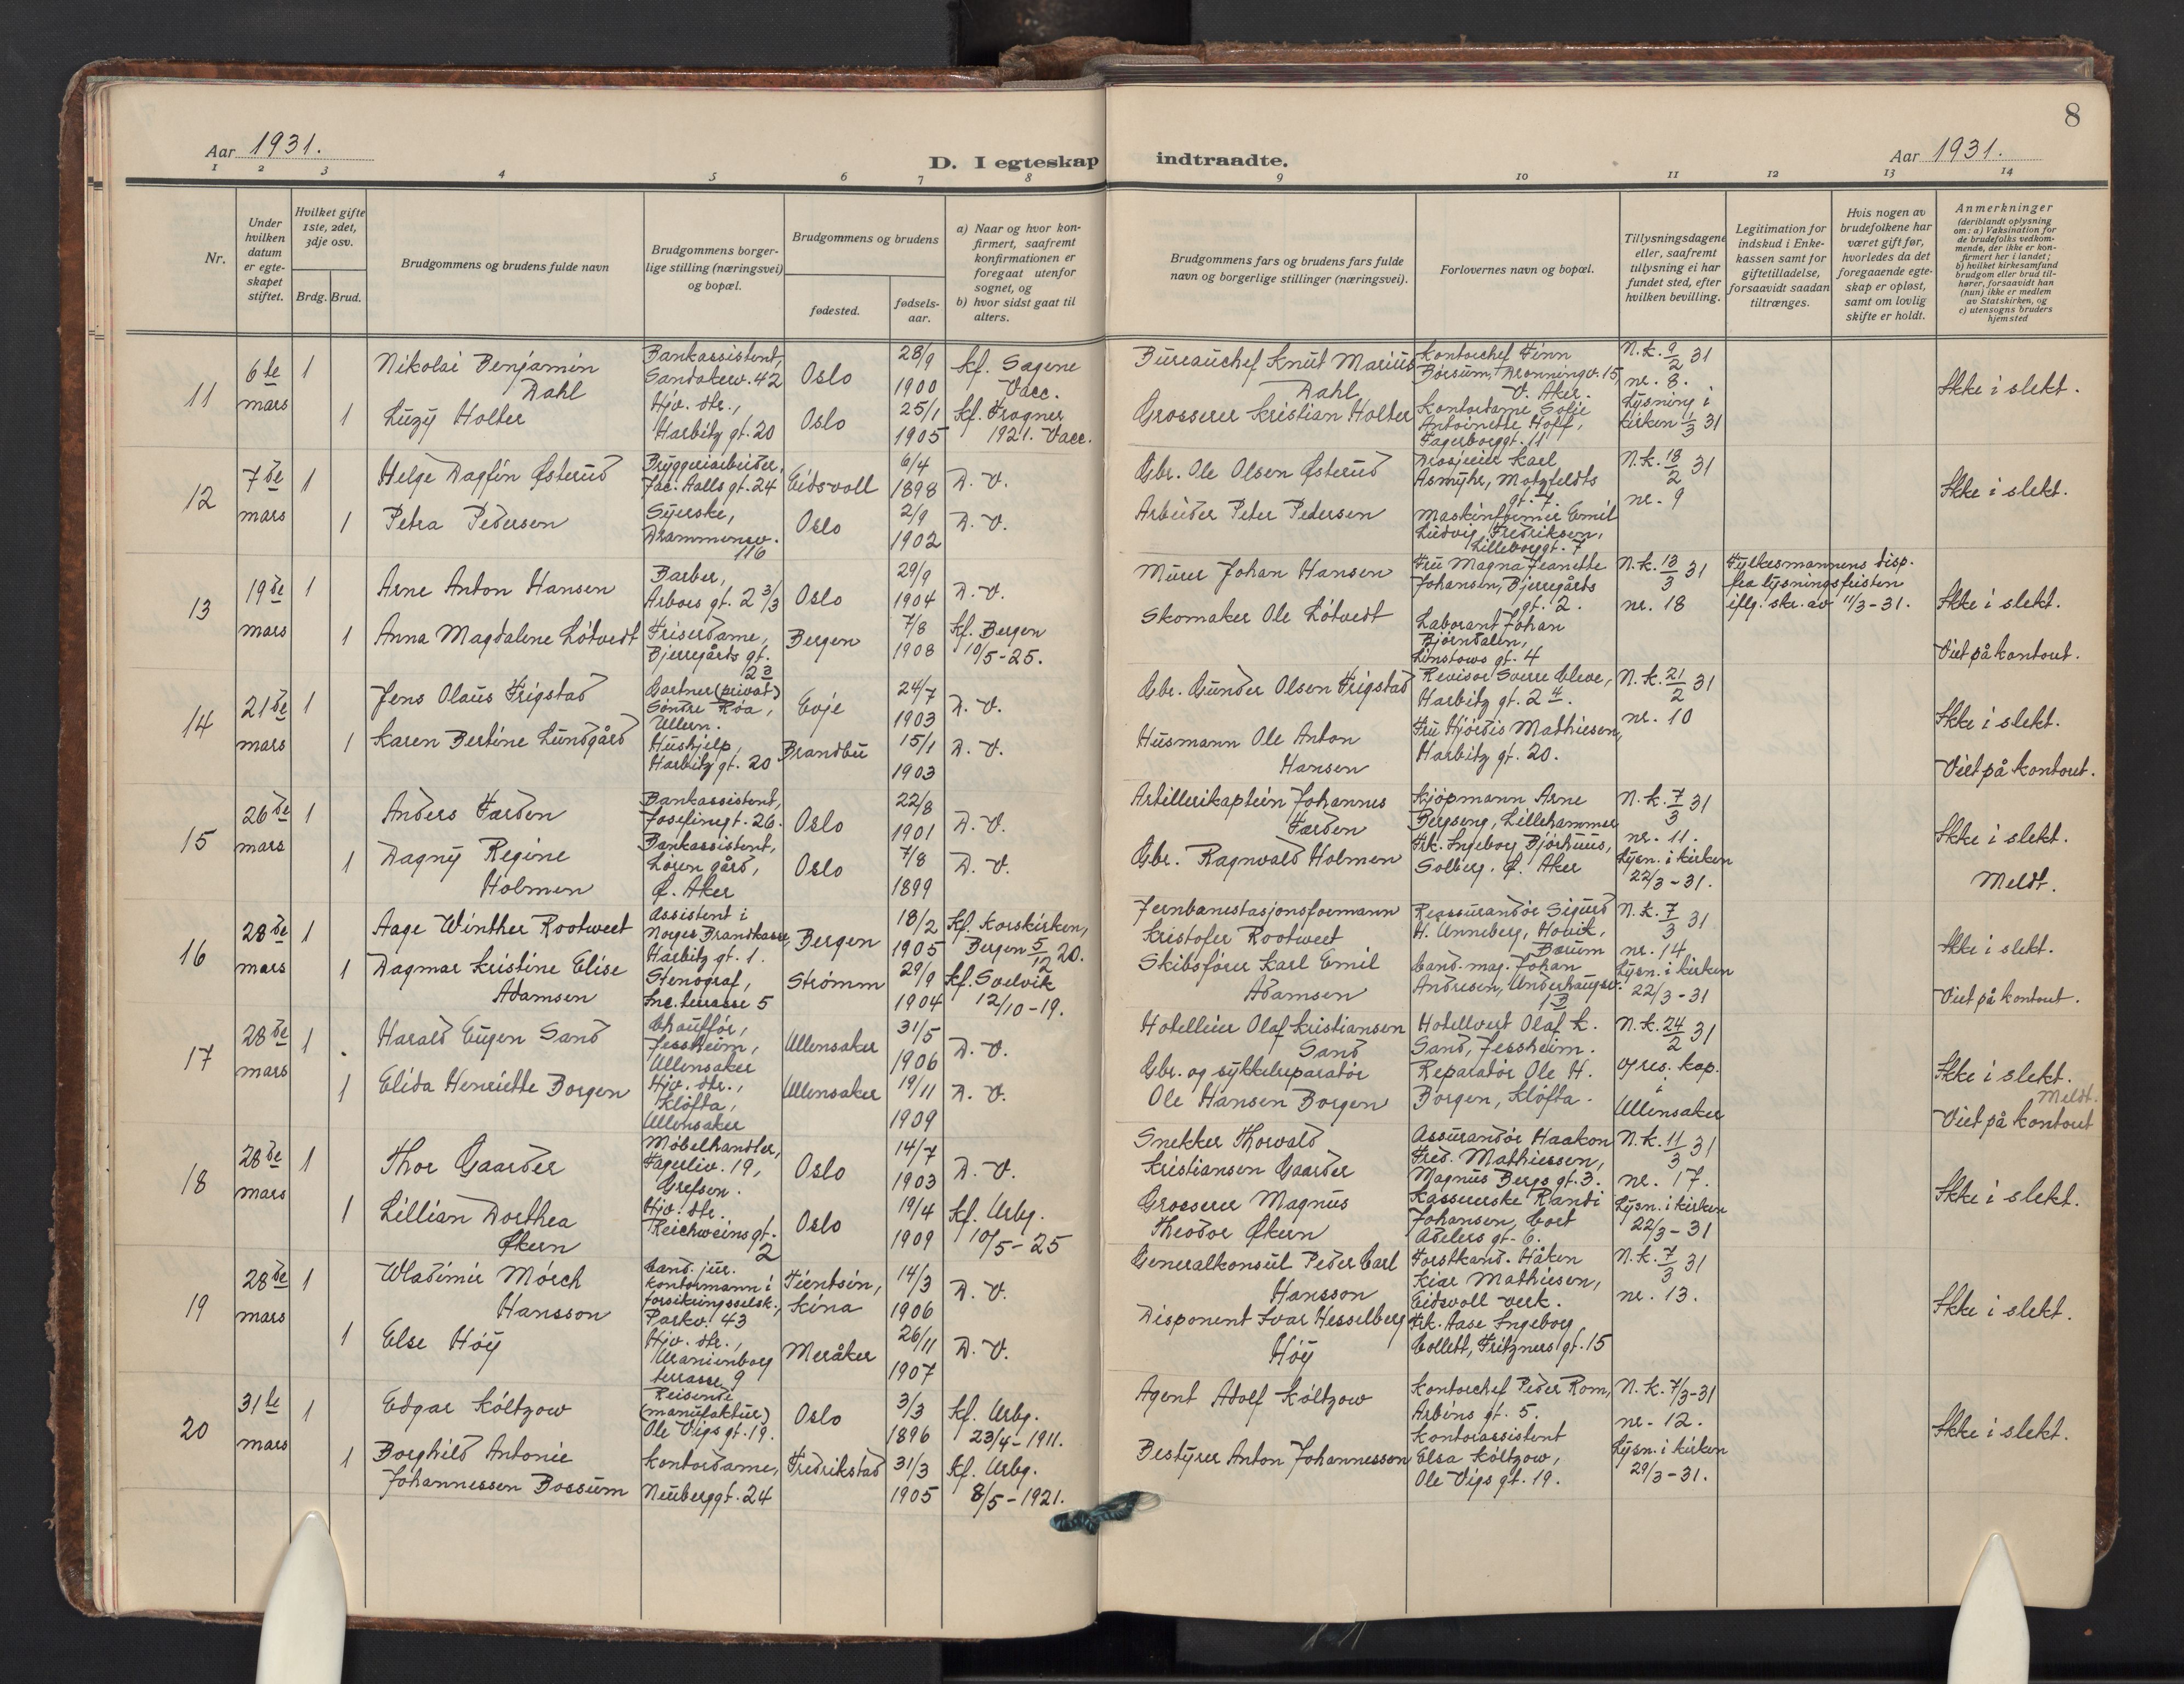 8
Aar 1931.
D. I egteskap indtraadte.
Aar 1931.
1 2 3 4 5 6 7 8 9 10 11 12 13 14
Nr.
Under hvilken datum er egteskapet stiftet.
Hvilket gifte 1ste, 2det, 3dje osv.
Brdg. Brud.
Brudgommens og brudens fulde navn
Brudgommens borgerlige stilling (næringsvei) og bopæl.
Brudgommens og brudens
fødested.
fødselsaar.
a) Naar og hvor konfirmert, saafremt konfirmationen er foregaat utenfor sognet, og
b) hvor sidst gaat til alters.
Brudgommens fars og brudens fars fulde navn og borgerlige stillinger (næringsvei).
Forlovernes navn og bopæl.
Tillysningsdagene eller, saafremt tillysning ei har fundet sted, efter hvilken bevilling.
Legitimation for indskud i Enkekassen samt for giftetilladelse, forsaavidt saadan tiltrænges.
Hvis nogen av brudefolkene har været gift før, hvorledes da det foregaaende egteskap er opløst, samt om lovlig skifte er holdt.
Anmerkninger
(deriblandt oplysning om: a) Vaksination for de brudefolks vedkommende, der ikke er konfirmert her i landet; b) hvilket kirkesamfund brudgom eller brud tilhører, forsaavidt han (hun) ikke er medlem av Statskirken, og c) utensogns bruders hjemsted
11 6te mars 1 Nikolai Benjamin Dahl Bankassistent, Sandakerv. 42 Oslo 28/9 1900 Kf. Sagene Vacc. Bureauchef Knut Marius Dahl Kontorchef Finn Børsum, Dronningv. 15, V. Aker. N.k. 9/2 31 nr. 8. Ikke i slekt.
1 Luzy Holter Hjv. dtr., Harbitz gt. 20 Oslo 25/1 1905 Kf. Frogner 1921. Vacc. Grosserer Kristian Holter Kontordame Sofie Antoinette Hoff, Fagerborggt. 11 Lysning i kirken 1/3 31
12 7de mars 1 Helge Dagfin Østerud Bryggeriarbeider, Jac. Aalls gt. 24 Eidsvoll 6/4 1898 D. V. Gbr. Ole Olsen Østerud Drosjeeier Karl Asmyhr, Motzfeldts gt. 7. N.k. 18/2 31 nr. 9 Ikke i slekt.
1 Petra Pedersen Syerske, Drammensv. 116 Oslo 2/9 1902 D. V. Arbeider Peter Pedersen Maskinformer Emil Ludvig Fredriksen, Lilleborggt. 7
13 19de mars 1 Arne Anton Hansen Barber, Arbos gt. 2 3/3 Oslo 29/9 1904 D. V. Murer Johan Hansen Fru Magna Jeanette Johansen, Bjerregårds gt. 2. N.k. 13/3 31 nr. 18 Fylkesmannens disp. fra lysningsfristen iflg. skr. av 11/3-31. Ikke i slekt.
1 Anna Magdalene Løtvedt Friserdame, Bjerregårds gt. 23 Bergen 7/8 1908 Kf. Bergen 10/5-25. Skomaker Ole Løtvedt Laborant Johan Bjørndalen, Linstows gt. 4 Viet på kontoret.
14 21de mars 1 Jens Olaus Frigstad Gartner (privat) Søndre Røa, Ullern. Evje 24/7 1903 D. V. Gbr. Gunder Olsen Frigstad Revisor Sverre Cleve, Harbitz gt. 2 4. N.k. 21/2 31 nr. 10 Ikke i slekt.
1 Karen Bertine Lundgård Hushjelp, Harbitz gt. 20 Brandbu 15/1 1903 D. V. Husmann Ole Anton Hansen Fru Hjørdis Mathiesen, Harbitz gt. 20. Viet på kontoret.
15 26de mars 1 Anders Farden Bankassistent, Josefinegt. 26. Oslo 22/8 1901 D. V. Artillerikaptein Johannes Farden Kjøpmann Arne Bergseng, Lillehammer N.k. 7/3 31 nr. 11. Ikke i slekt.
1 Dagny Regine Holmen Bankassistent, Løren gård, Ø. Aker Oslo 7/8 1899 D. V. Gbr. Ragnvald Holmen Frk. Ingeborg Bjørhuus, Solberg. Ø. Aker Lysn. i kirken 22/3-31. Meldt.
16 28de mars 1 Aage Winther Rootweet Assistent i Norges Brandkasse, Harbitz gt. 1. Bergen 18/2 1905 Kf. Korskirken, Bergen 5/12 20. Jernbanestasjonsformann Kristofer Rootweet Reassurandør Sigurd H. Anneberg, Høvik, Bærum N.k. 7/3 31 nr. 14 Ikke i slekt.
1 Dagmar Kristine Elise Adamsen Stenograf, Inc. terrasse 5 Strømm 29/9 1904 Kf. Svelvik 12/10-19. Skibsfører Karl Emil Adamsen Cand. mag. Johan Andresen, Underhaugsv. 13 Lysn. i kirken 22/3-31 Viet på kontoret.
17 28de mars 1 Harald Eugen Sand Chauffør, Jessheim, Ullensaker Ullensaker 31/5 1906 D. V. Hotelleier Olaf Kristiansen Sand Hotellvert Olaf K. Sand, Jessheim. N.k. 24/2 31 og res. kap. i Ullensaker Ikke i slekt. Meldt.
1 Elida Henriette Borgen Hjv. dtr., Kløfta, Ullensaker Ullensaker 19/11 1909 D. V. Gbr. og sykkelreparatør Ole Hansen Borgen Reparatør Ole H. Borgen, Kløfta. Viet på kontoret
18 28de mars 1 Thor Gaarder Møbelhandler, Fagerliv. 19, Grefsen. Oslo 14/7 1903 D. V. Snekker Thorvald Kristiansen Gaarder Assurandør Haakon Fred. Mathiessen, Magnus Bergs gt. 3. N.k. 11/3 31 nr. 17. Ikke i slekt.
1 Lillian Dorthea Økern Hjv. dtr. Reichweinsgt. 2 Oslo 19/4 1909 Kf. Urbg. 10/5-25 Grosserer Magnus Theodor Økern Kassererske Randi Johansen, Cort Adelers gt. 6. Lysn. i kirken 22/3-31
19 28de mars 1 Wladimir Mørch Hansson Cand. jur. kontormann i forsikringsselsk., Parkv. 43 Tientsin, Kina 14/3 1906 D. V. Generalkonsul Peder Carl Hansson Forstkand. Håken Kiær Mathiesen, Eidsvoll verk. N.k. 7/3 31 nr. 13. Ikke i slekt.
1 Else Høy Hjv. dtr., Uranienborg terrasse 9 Meråker 26/11 1907 D. V. Disponent Ivar Hesselberg Høy Frk. Aase Ingeborg Collett, Fritzners gt. 15
20 31te mars 1 Edgar Køltzow Reisende (manufaktur) Ole Vigs gt. 19. Oslo 3/3 1896 Kf. Urbg. 23/4-1911. Agent Adolf Køltzow Kontorchef Peder Rom, Arbins gt. 5. N.k. 7/3-31 nr. 12. Ikke i slekt.
1 Borghild Antonie Johannessen Bossum Kontordame, Neuberggt. 24 Fredrikstad 31/3 1905 Kf. Urbg. 8/5-1921. Bestyrer Anton Johannesson Kontorassistent Elsa Køltzow, Ole Vigs gt. 19. Lysn. i kirken 29/3-31.